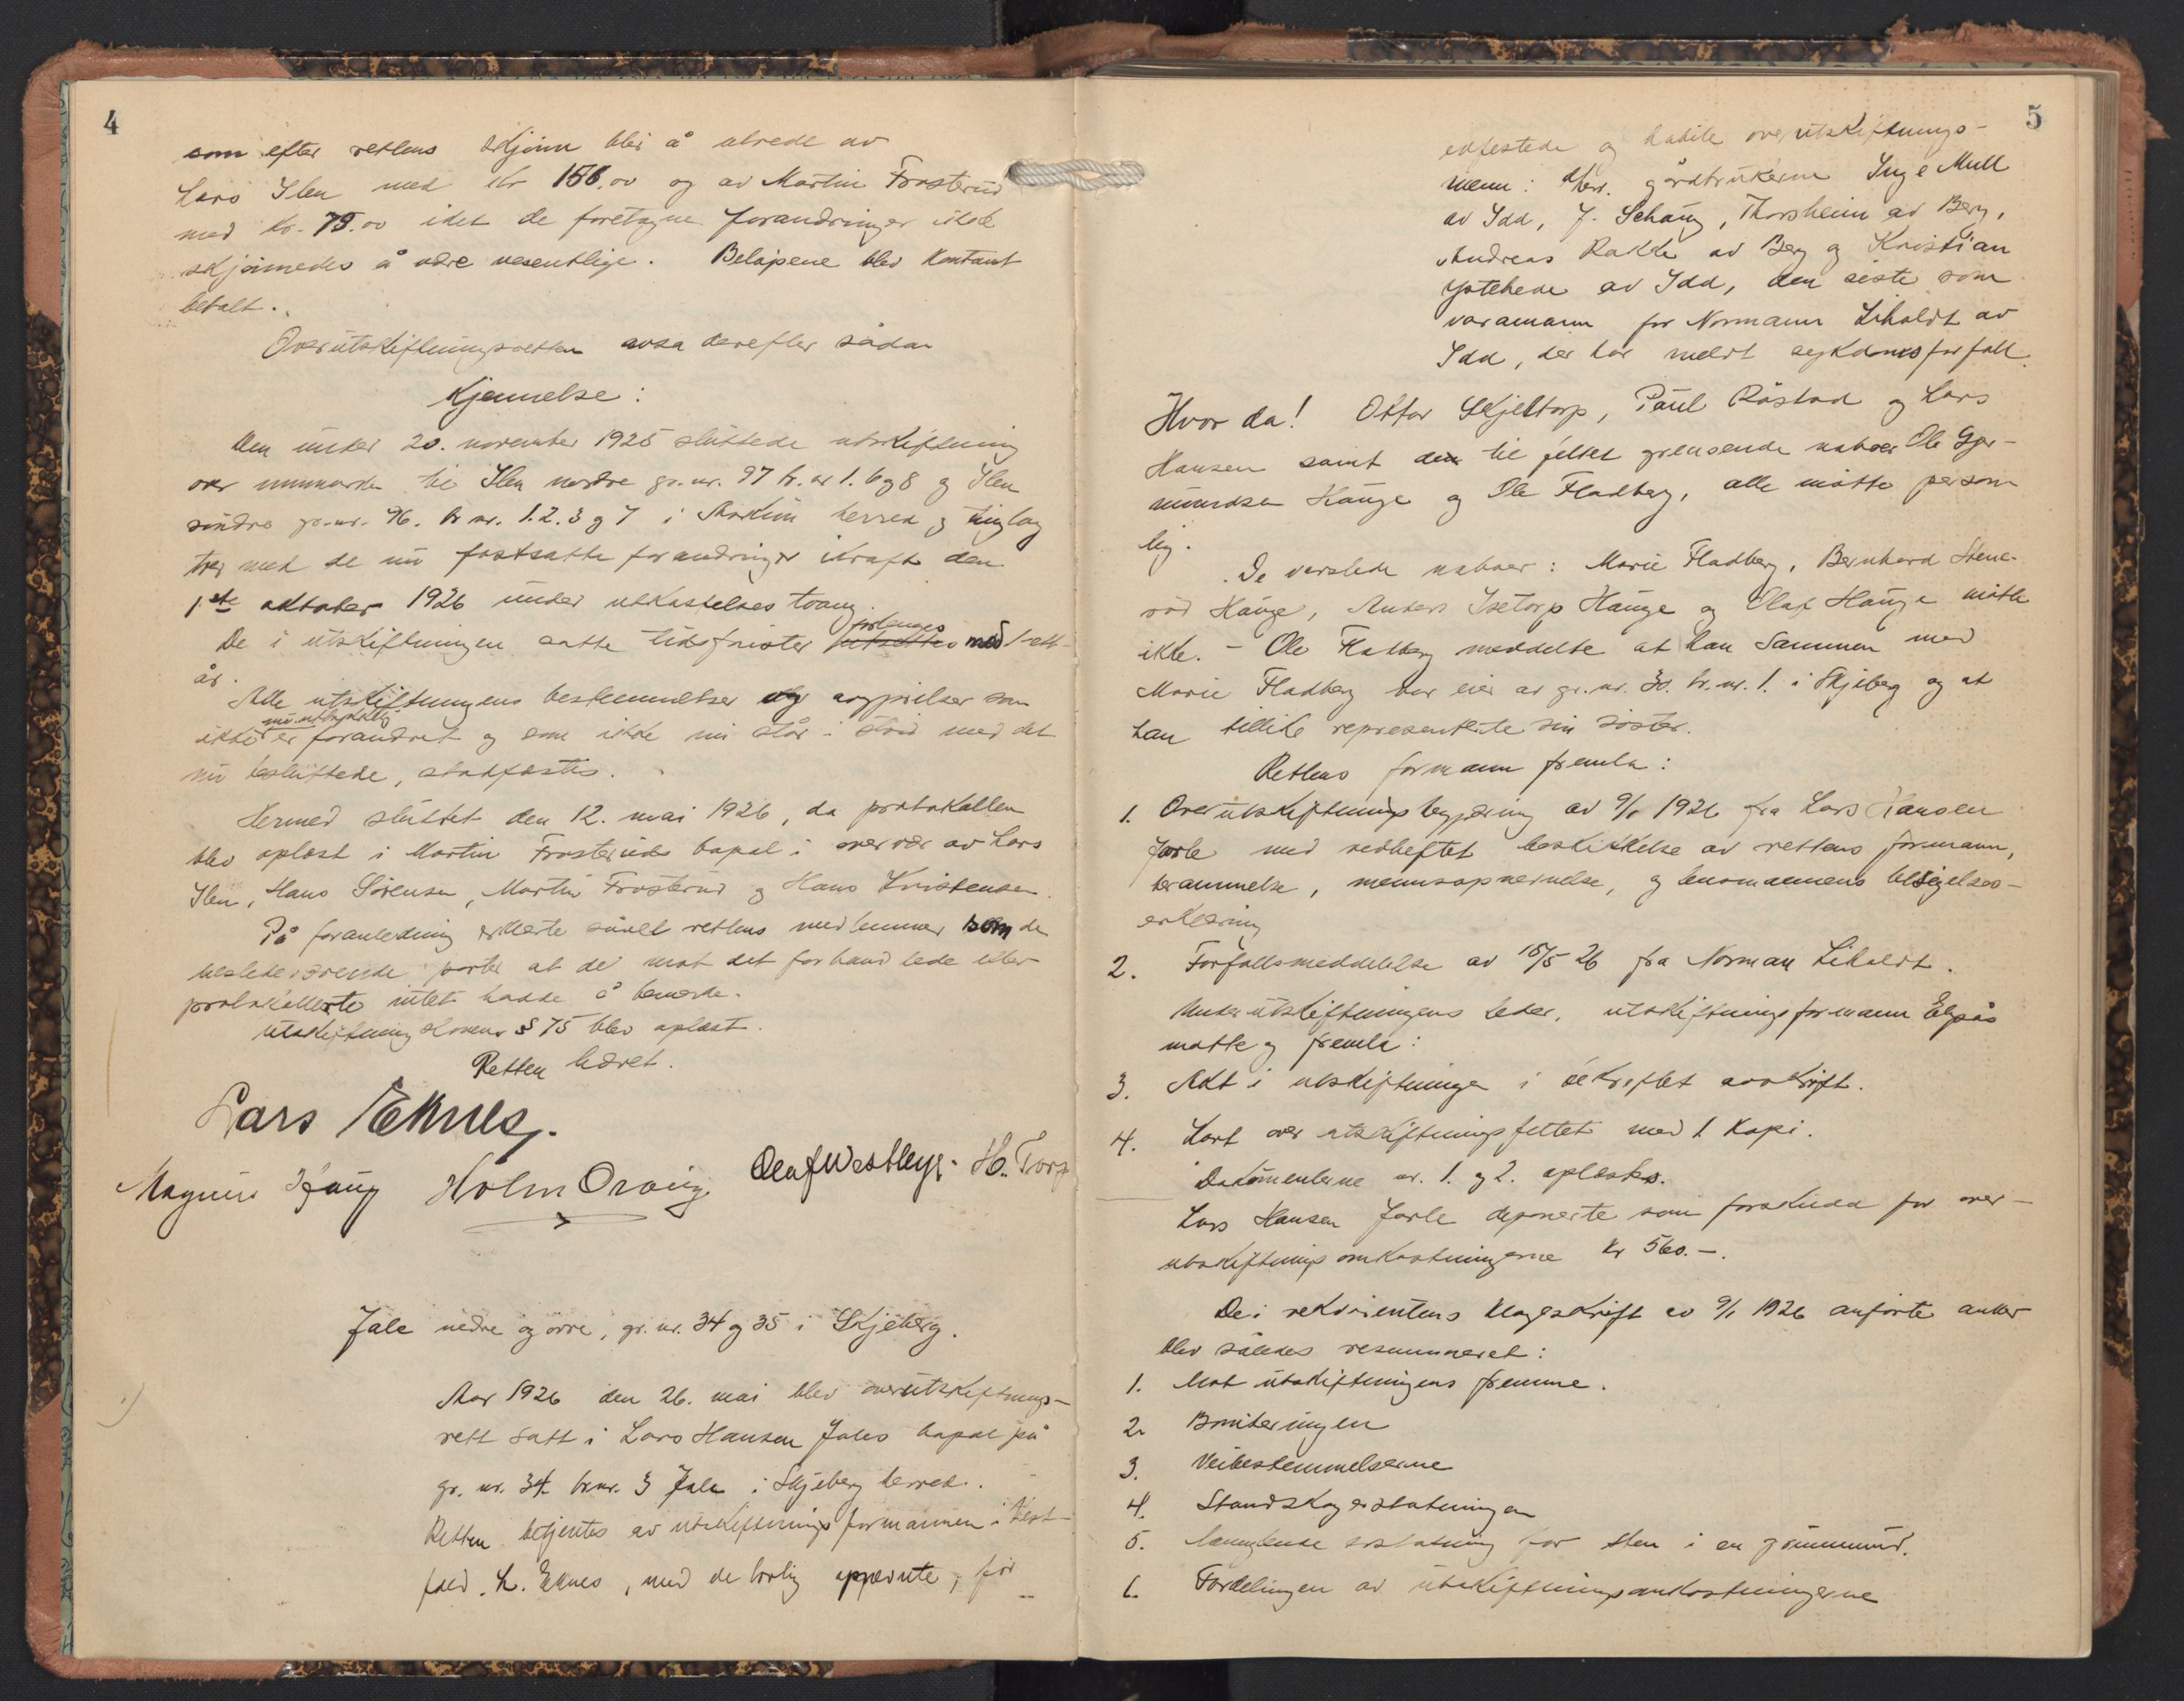 4
som efter rettens skjønn blir å utrede av
Lars Ilen med kr 156.00 og av Martin Frosterud
med kr. 75.00 idet de foretagne forandringer ikke
skjønnedes å være vesentlige. Beløpene blev kontant
betalt.
Overutskiftningsretten avsa derefter sådan
Kjennelse:
Den under 20. november 1925 sluttede utskiftning
over innmarken til Ilen nordre gr.nr. 97 br.nr 1. 6 og 8 og Ilen
søndre gr.nr. 96. br nr. 1. 2. 3 og 7 i Askim herred og tinglag
trer med de nu fastsatte forandringer ikraft den
1ste oktober 1926 under utkastelses tvang.
De i utskiftningen satte tidsfrister utsettes forlenges med 1-ett-
år.
Alle utskiftningens bestemmelser og avgjørelser som
ikke er nu uttrykkelig forandret og som ikke nu står i strid med det
nu besluttede, stadfestes.
Hermed sluttet den 12. mai 1926, da protokollen
blev oplest i Martin Frosteruds bopæl i overvær av Lars
Ilen, Hans Sørensen, Martin Frosterud og Hans Kristensen.
På foranledning erklærte såvel rettens medlemmer som de
tilstedeværende parter at de mot det forhandlede eller
protokollerte intet hadde å bemerke.
Utskiftningslovens § 75 blev oplæst.
Retten hævet.
Lars Eknes.
Magnus Holm Olaf Westbye. H. Torp
Jale nedre og øvre, gr. nr. 34 og 35 i Skjeberg.
Aar 1926 den 26. mai blev overutskiftnings-
rett satt i Lars Hansen Jales bopæl på
gr. nr. 34 br.nr. 3 Jale i Skjeberg herred.
Retten betjentes av utskiftningsformannen i Vest-
fold L. Eknes, med de lovlig opnevnte, før
5
edfestede og habile overutskiftnings-
menn: Herr. gårdbrukerne Inge Mull
av Idd, J. Schaug, Thorsheim av Berg,
Andreas Rakke av Berg og Kristian
Ystehede av Idd, den siste som
varamann for Normann Liholdt av
Idd, der har meldt sykdomsforfall.
Hvor da! Ottar Skjeltorp, Paul Råstad og Lars
Hansen samt de til feltet grensende naboer Ole Gjer-
mundsen Hauge og Ole Fladberg, alle møtte person-
lig.
De varslede naboer: Marie Fladberg, Bernhard Stene-
rød Hauge, Anders Isetorp Hauge og Olaf Hauge møtte
ikke. - Ole Fladberg meddelte at han sammen med
Marie Fladberg var eier av gr.nr. 30. br.nr. 1. i Skjeberg og at
han tillike representerte sin søster.
Rettens formann fremla:
1. Overutskiftningsbegjæring av 9/1 1926 fra Lars Hansen
Jarle med vedheftet beskikkelse av rettens formann,
berammelse, mennsopnevnelse, og lensmannens besigelses-
erklæring
2. Forfallsmeddelelse av 15/5 26 fra Norman Liholdt.
Underutskiftningens leder, utskiftningsformann Elgås
møtte og fremla:
3. Akt i utskiftningen i bekreftet avskrift.
4. Kart over utskiftningsfeltet med 1 kopi.
Dokumentene nr. 1. og 2. oplestes.
Lars Hansen Jarle deponerte som forskudd for over-
utskiftningsomkostningerne kr 560.-.
De i rekvirentens klageskrift av 9/1 1926 anførte anker
blev således resummeret:
1. Mot utskiftningens fremme.
2. Boniteringen
3. Veibestemmelserne
4. Standskogerstatningen
5. Manglende erstatning for sten i en grunnmur.
6. Fordelingen av utskiftningsomkostningerne